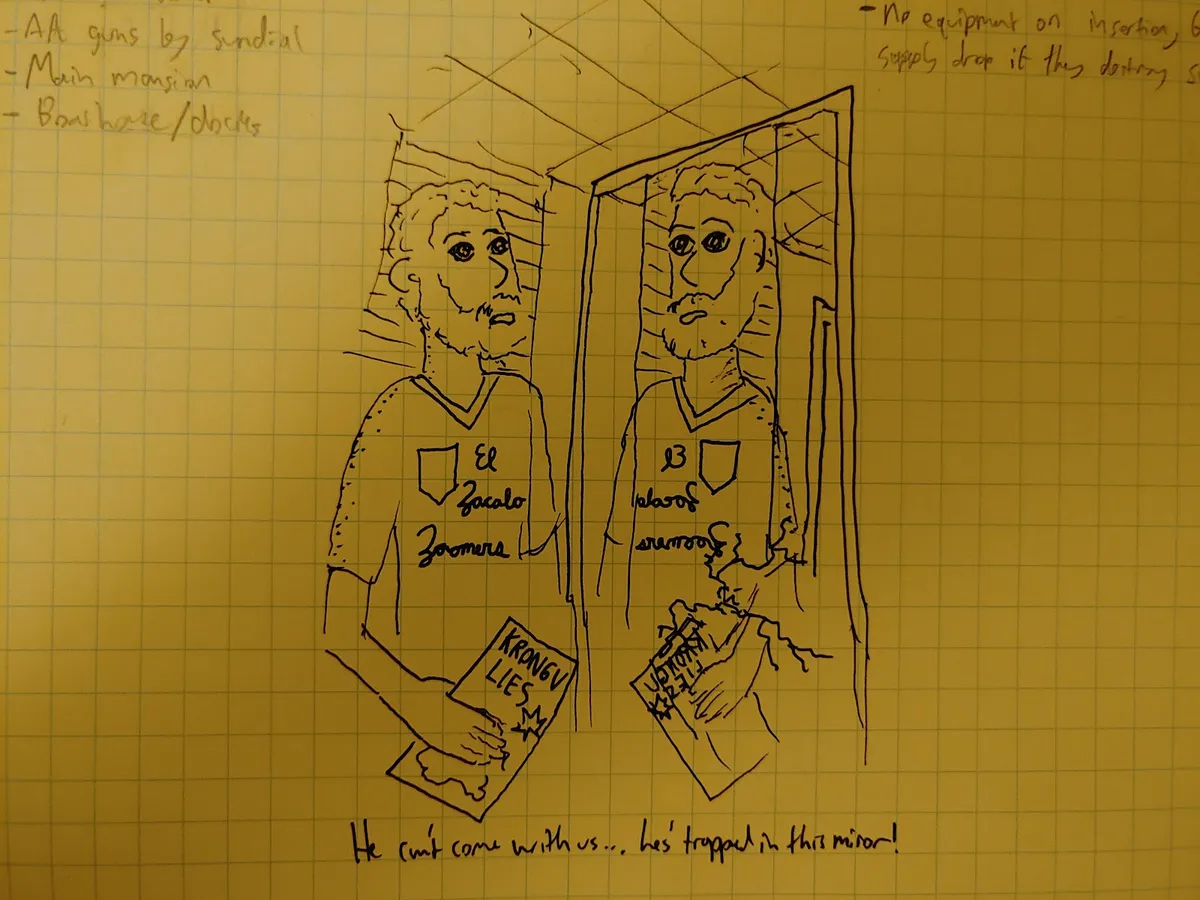 - AA guns by sundial
- Main mansion
- Boathouse/docks
- No equipment on insertion,
supply drop if they destroy
El
Zacalo
Zoomers
El
Zacalo
Zoomers
KRONGV
LIES
KRONGV
LIES
He can't come with us... hes' trapped in this mirror!